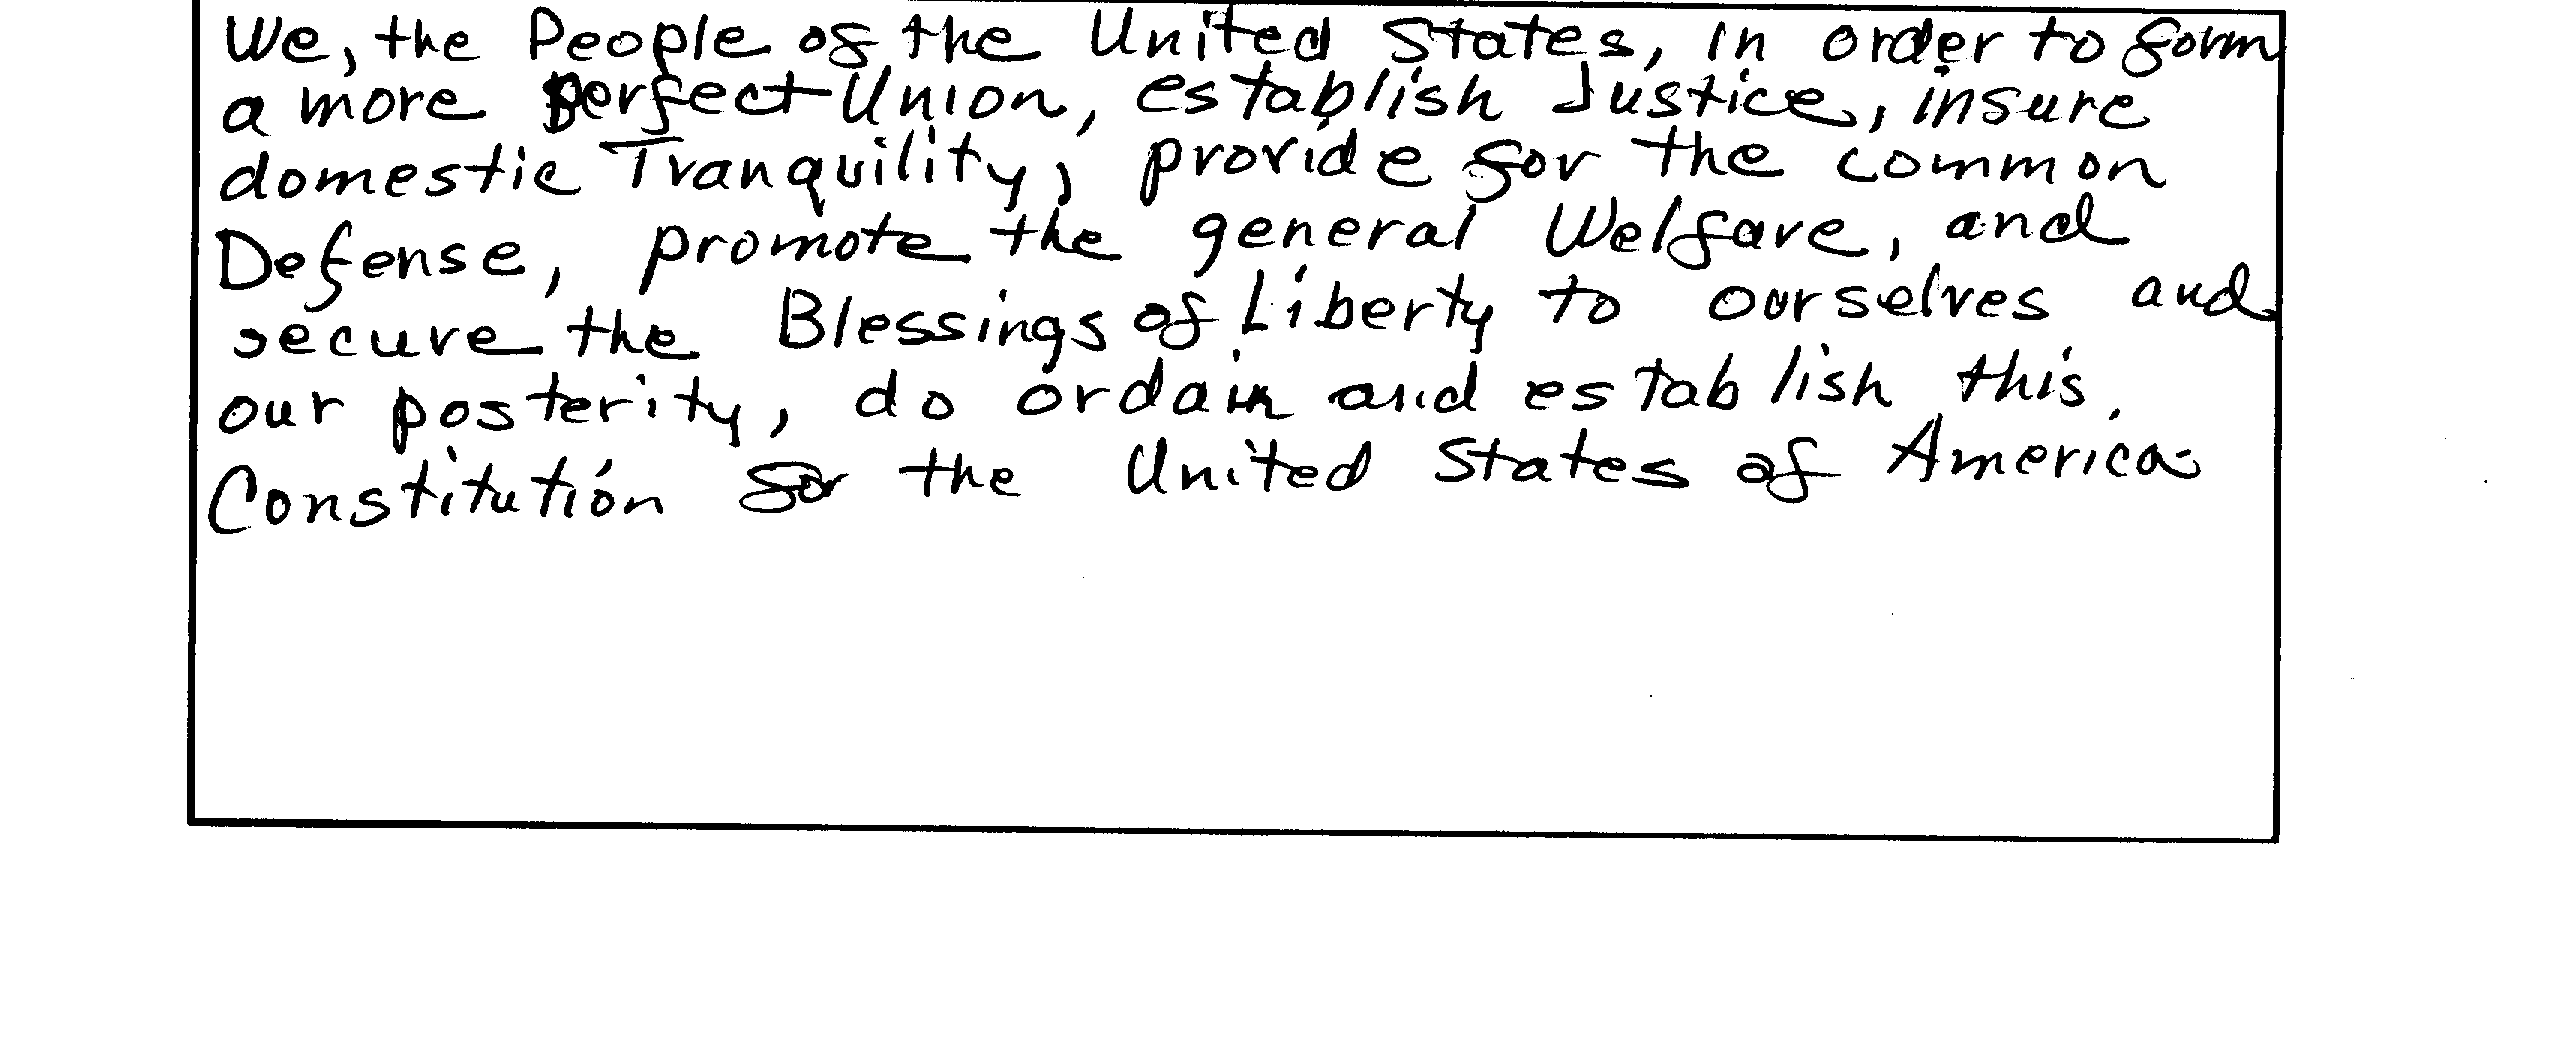 We, the People of the United States, in order to form
a more perfect Union, establish Justice, insure
domestic Tranquility, provide for the common
Defense, promote the general Welfare, and
secure the Blessings of Liberty to ourselves and
our posterity, do ordain and establish this
Constitution for the United States of America